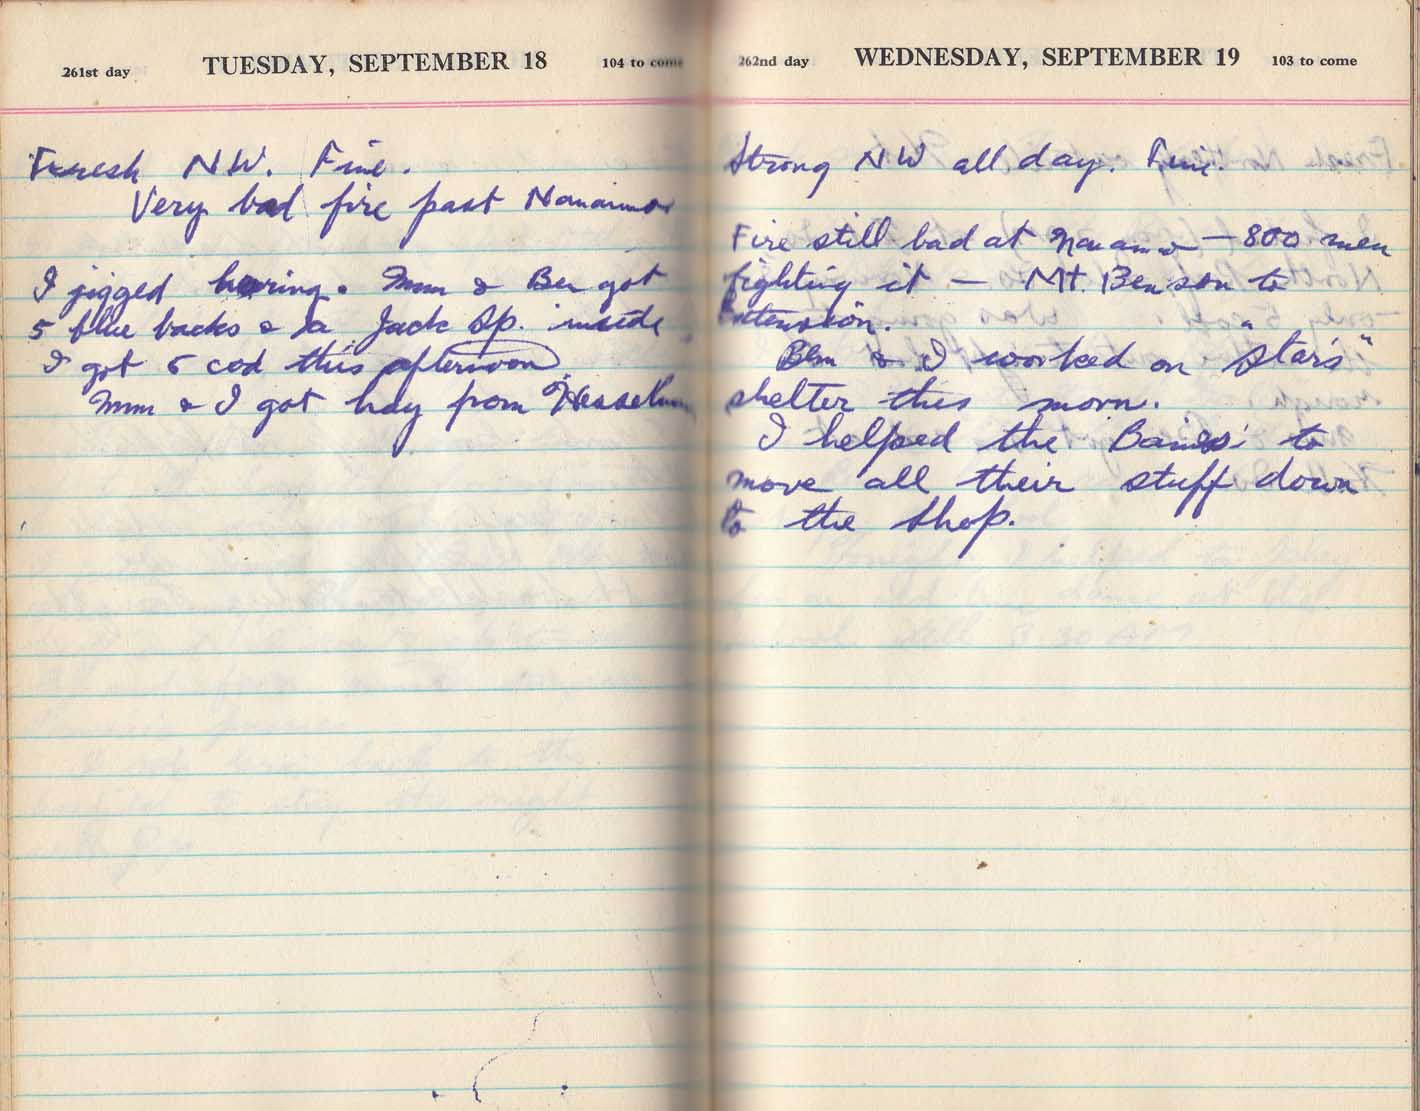 261st day TUESDAY, SEPTEMBER 18 104 to come
Fresh NW. Fine.
Very bad fire past Nanaimo
I jigged herring. Mum & Ben got
5 blue backs & Jack Sp. inside
I got 6 cod this afternoon
Mum & I got hay from
262nd day WEDNESDAY, SEPTEMBER 19 103 to come
Strong NW all day. Fine.
Fire still bad at Nanaimo — 800 men
fighting it — Mt. Benson to
Extension.
& I worked on "Star's"
shelter this morn.
I helped the to
move all their stuff down
to the shop.